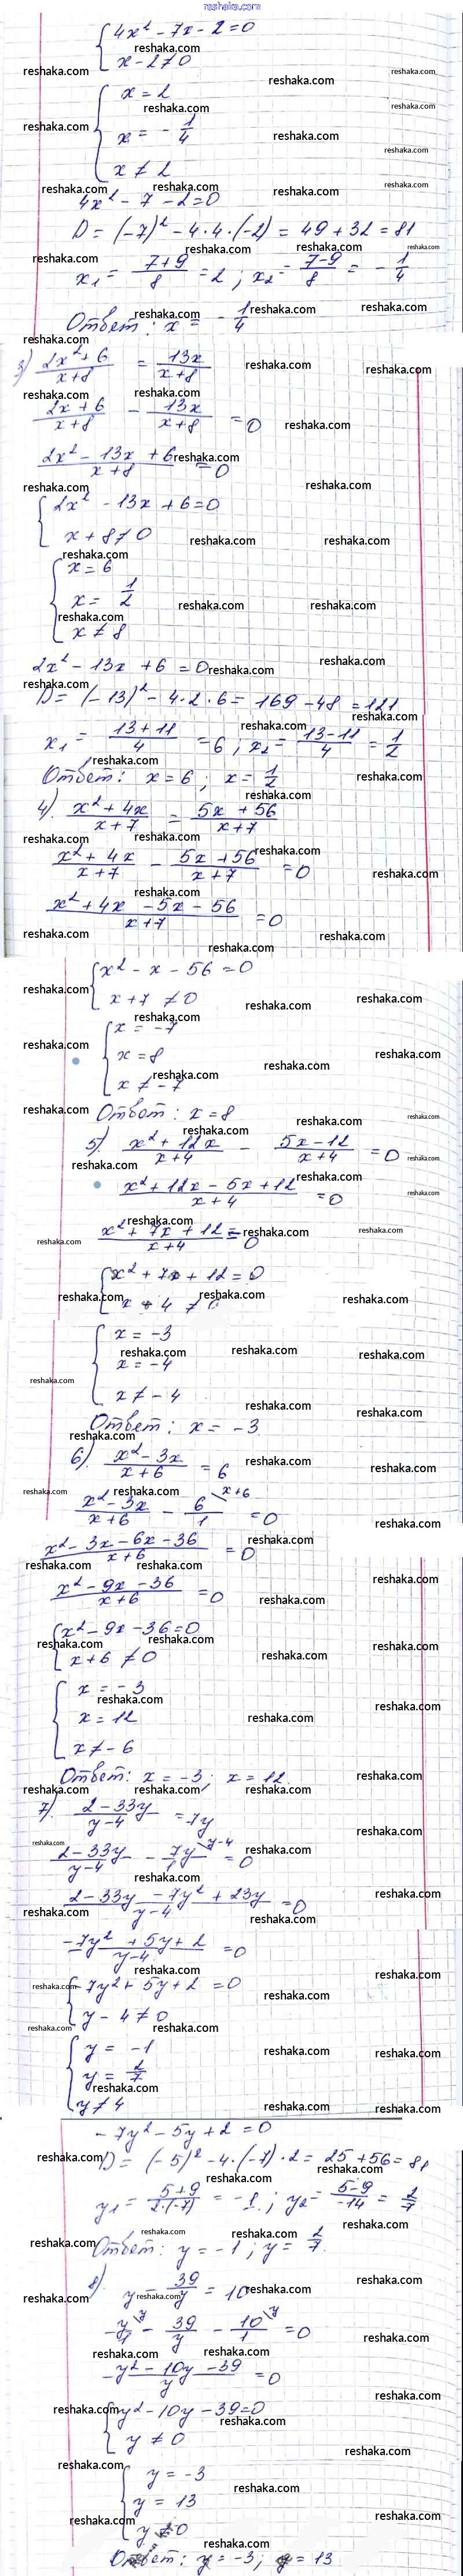 reshaka.com
4x² - 7x - 2 = 0
x - 2 ≠ 0
x = 2
x = - 1/4
x ≠ 2
4x² - 7 - 2 = 0
D = (-7)² - 4·4·(-2) = 49 + 32 = 81
x₁ = (7+9)/8 = 2 ; x₂ = (7-9)/8 = - 1/4
Ответ: x = - 1/4
3) (2x² + 6)/(x+8) = 13x/(x+8)
(2x + 6)/(x+8) - 13x/(x+8) = 0
(2x² - 13x + 6)/(x+8) = 0
2x² - 13x + 6 = 0
x + 8 ≠ 0
x = 6
x = 1/2
x ≠ 8
2x² - 13x + 6 = 0
D = (-13)² - 4·2·6 = 169 - 48 = 121
x₁ = (13+11)/4 = 6 ; x₂ = (13-11)/4 = 1/2
Ответ: x = 6 ; x = 1/2
4) (x² + 4x)/(x+7) = (5x + 56)/(x+7)
(x² + 4x)/(x+7) - (5x + 56)/(x+7) = 0
(x² + 4x - 5x - 56)/(x+7) = 0
x² - x - 56 = 0
x + 7 ≠ 0
x = -7
x = 8
x ≠ -7
Ответ: x = 8
5) (x² + 12x)/(x+4) - (5x - 12)/(x+4) = 0
(x² + 12x - 5x + 12)/(x+4) = 0
(x² + 7x + 12)/(x+4) = 0
x² + 7x + 12 = 0
x + 4 ≠ 0
x = -3
x = -4
x ≠ -4
Ответ: x = -3
6) (x² - 3x)/(x+6) = 6
(x² - 3x)/(x+6) - 6/1 \x+6 = 0
(x² - 3x - 6x - 36)/(x+6) = 0
(x² - 9x - 36)/(x+6) = 0
x² - 9x - 36 = 0
x + 6 ≠ 0
x = -3
x = 12
x ≠ -6
Ответ: x = -3; x = 12
7) (2 - 33y)/(y-4) = 7y
(2 - 33y)/(y-4) - 7y/1 \y-4 = 0
(2 - 33y - 7y² + 23y)/(y-4) = 0
(-7y² + 5y + 2)/(y-4) = 0
-7y² + 5y + 2 = 0
y - 4 ≠ 0
y = -1
y = 2/7
y ≠ 4
-7y² - 5y + 2 = 0
D = (-5)² - 4·(-7)·2 = 25 + 56 = 81
y₁ = (5+9)/(2·(-7)) = -1 ; y₂ = (5-9)/(-14) = 2/7
Ответ: y = -1 ; y = 2/7.
8) y - 39/y = 10
y/1 \y - 39/y - 10/1 \y = 0
(y² - 10y - 39)/y = 0
y² - 10y - 39 = 0
y ≠ 0
y = -3
y = 13
y ≠ 0
Ответ: y = -3; y = 13